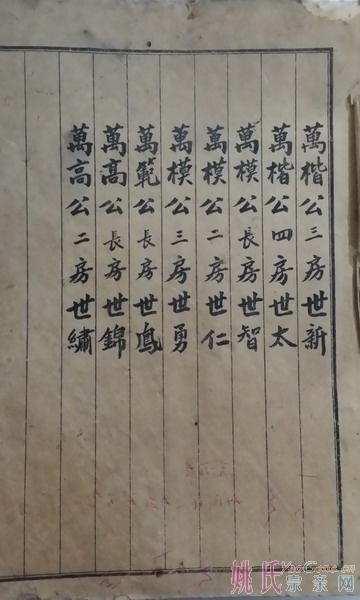 萬楷公三房世新
萬楷公四房世太
萬模公長房世智
萬模公二房世仁
萬模公三房世勇
萬範公長房世鳳
萬高公長房世錦
萬高公二房世繡
姚氏宗亲网